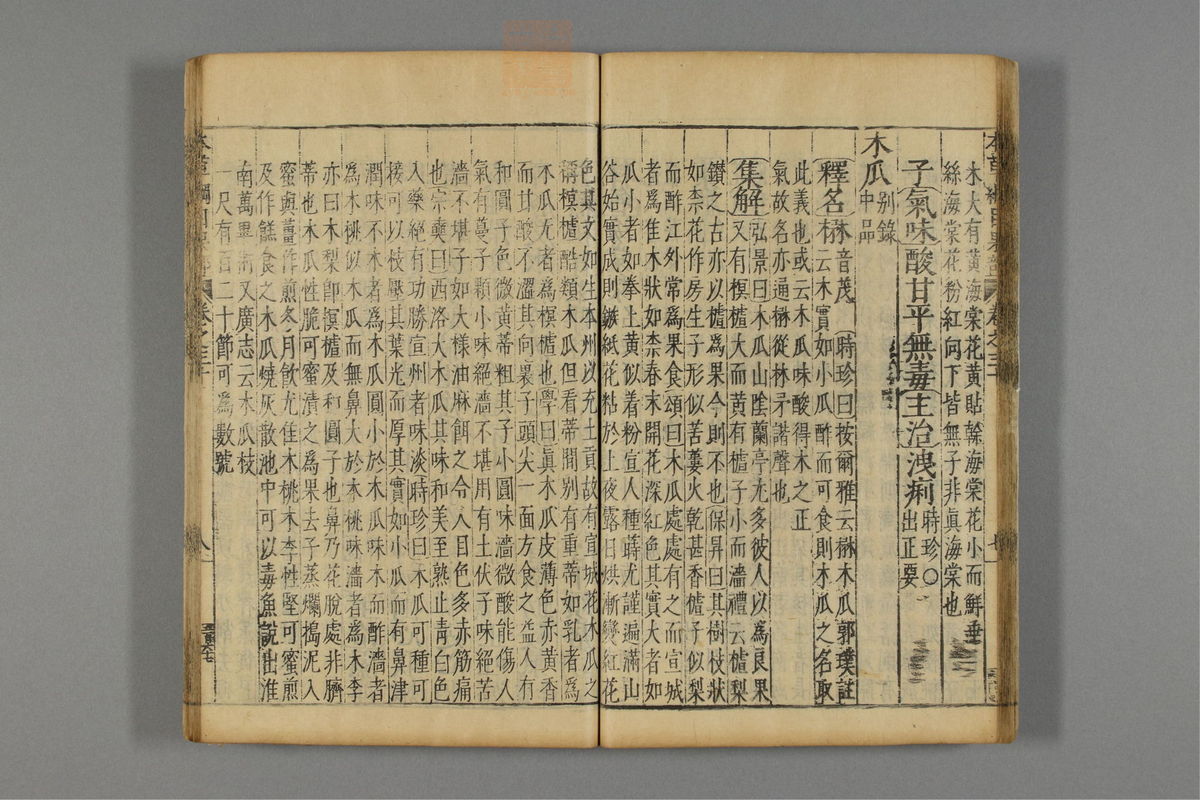 木大有黃海棠花黃貼幹海棠花小而鮮垂
絲海棠花粉紅向下皆無子非真海棠也
子氣味酸甘平無毒主治洩痢時珍○出正要
木瓜別錄中品
釋名楙音茂時珍曰按爾雅云楙木瓜郭璞註
云木實如小瓜酢而可食則木瓜之名取
此義也或云木瓜味酸得木之正
氣故名亦通楙從林矛諧聲也
集解弘景曰木瓜山陰蘭亭尤多彼人以為良果
又有榠樝大而黃有樝子小而濇禮云樝梨
鑽之古亦以樝為果今則不也保昇曰其樹枝狀
如柰花作房生子形似苦蔞火乾甚香樝子似梨
而酢江外常為果食頌曰木瓜處處有之而宣城
者為佳木狀如柰春末開花深紅色其實大者如
瓜小者如拳上黃似着粉宣人種蒔尤謹遍滿山
谷始實成則鏃紙花粘於上夜露日烘漸變紅花
色其文如生本州以充土貢故有宣城花木瓜之
稱榠樝酷類木瓜但看蒂間别有重蒂如乳者為
木瓜无者為榠樝也斅曰真木瓜皮薄色赤黃香
而甘酸不濇其向裏子頭尖一面方食之益人有
和圓子色微黃蒂粗其子小圓味濇微酸能傷人
氣有蔓子顆小味絕濇不堪用有土伏子味絕苦
濇不堪子如大樣油麻餌之令人目色多赤筋痛
也宗奭曰西洛大木瓜其味和美至熟止青白色
入藥絕有功勝宣州者味淡時珍曰木瓜可種可
接可以枝壓其葉光而厚其實如小瓜而有鼻津
潤味不木者為木瓜圓小於木瓜味木而酢濇者
為木桃似木瓜而無鼻大於木桃味濇者為木李
亦曰木梨即榠樝及和圓子也鼻乃花脫處非臍
蒂也木瓜性脆可蜜漬之為果去子蒸爛搗泥入
蜜與薑作煎冬月飲尤佳木桃木李性堅可蜜煎
及作糕食之木瓜燒灰散池中可以毒魚說出淮
南萬畢術又廣志云木瓜枝
一尺有百二十節可為數號